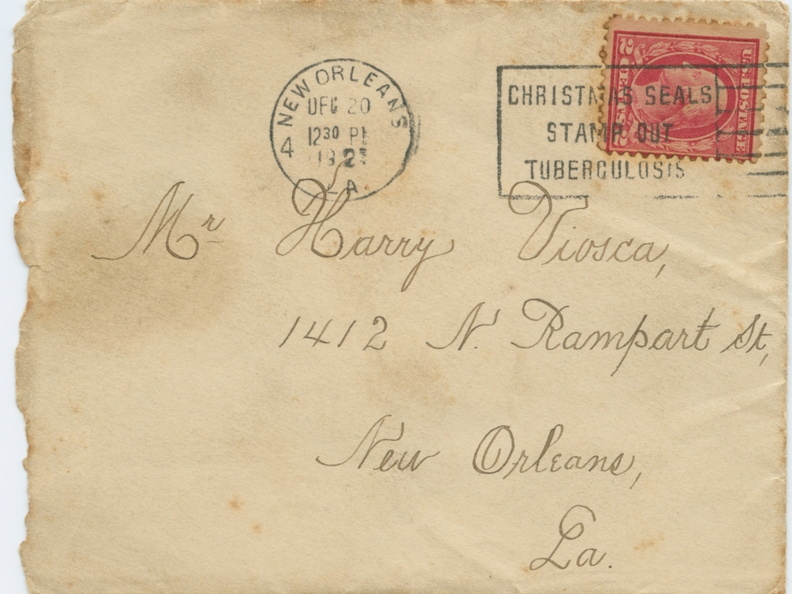 NEW ORLEANS
DEC 20
12 30 P
192
4
LA.
CHRISTMAS SEALS
STAMP OUT
TUBERCULOSIS
Mr Harry Viosca,
1412 N. Rampart St,
New Orleans,
La.